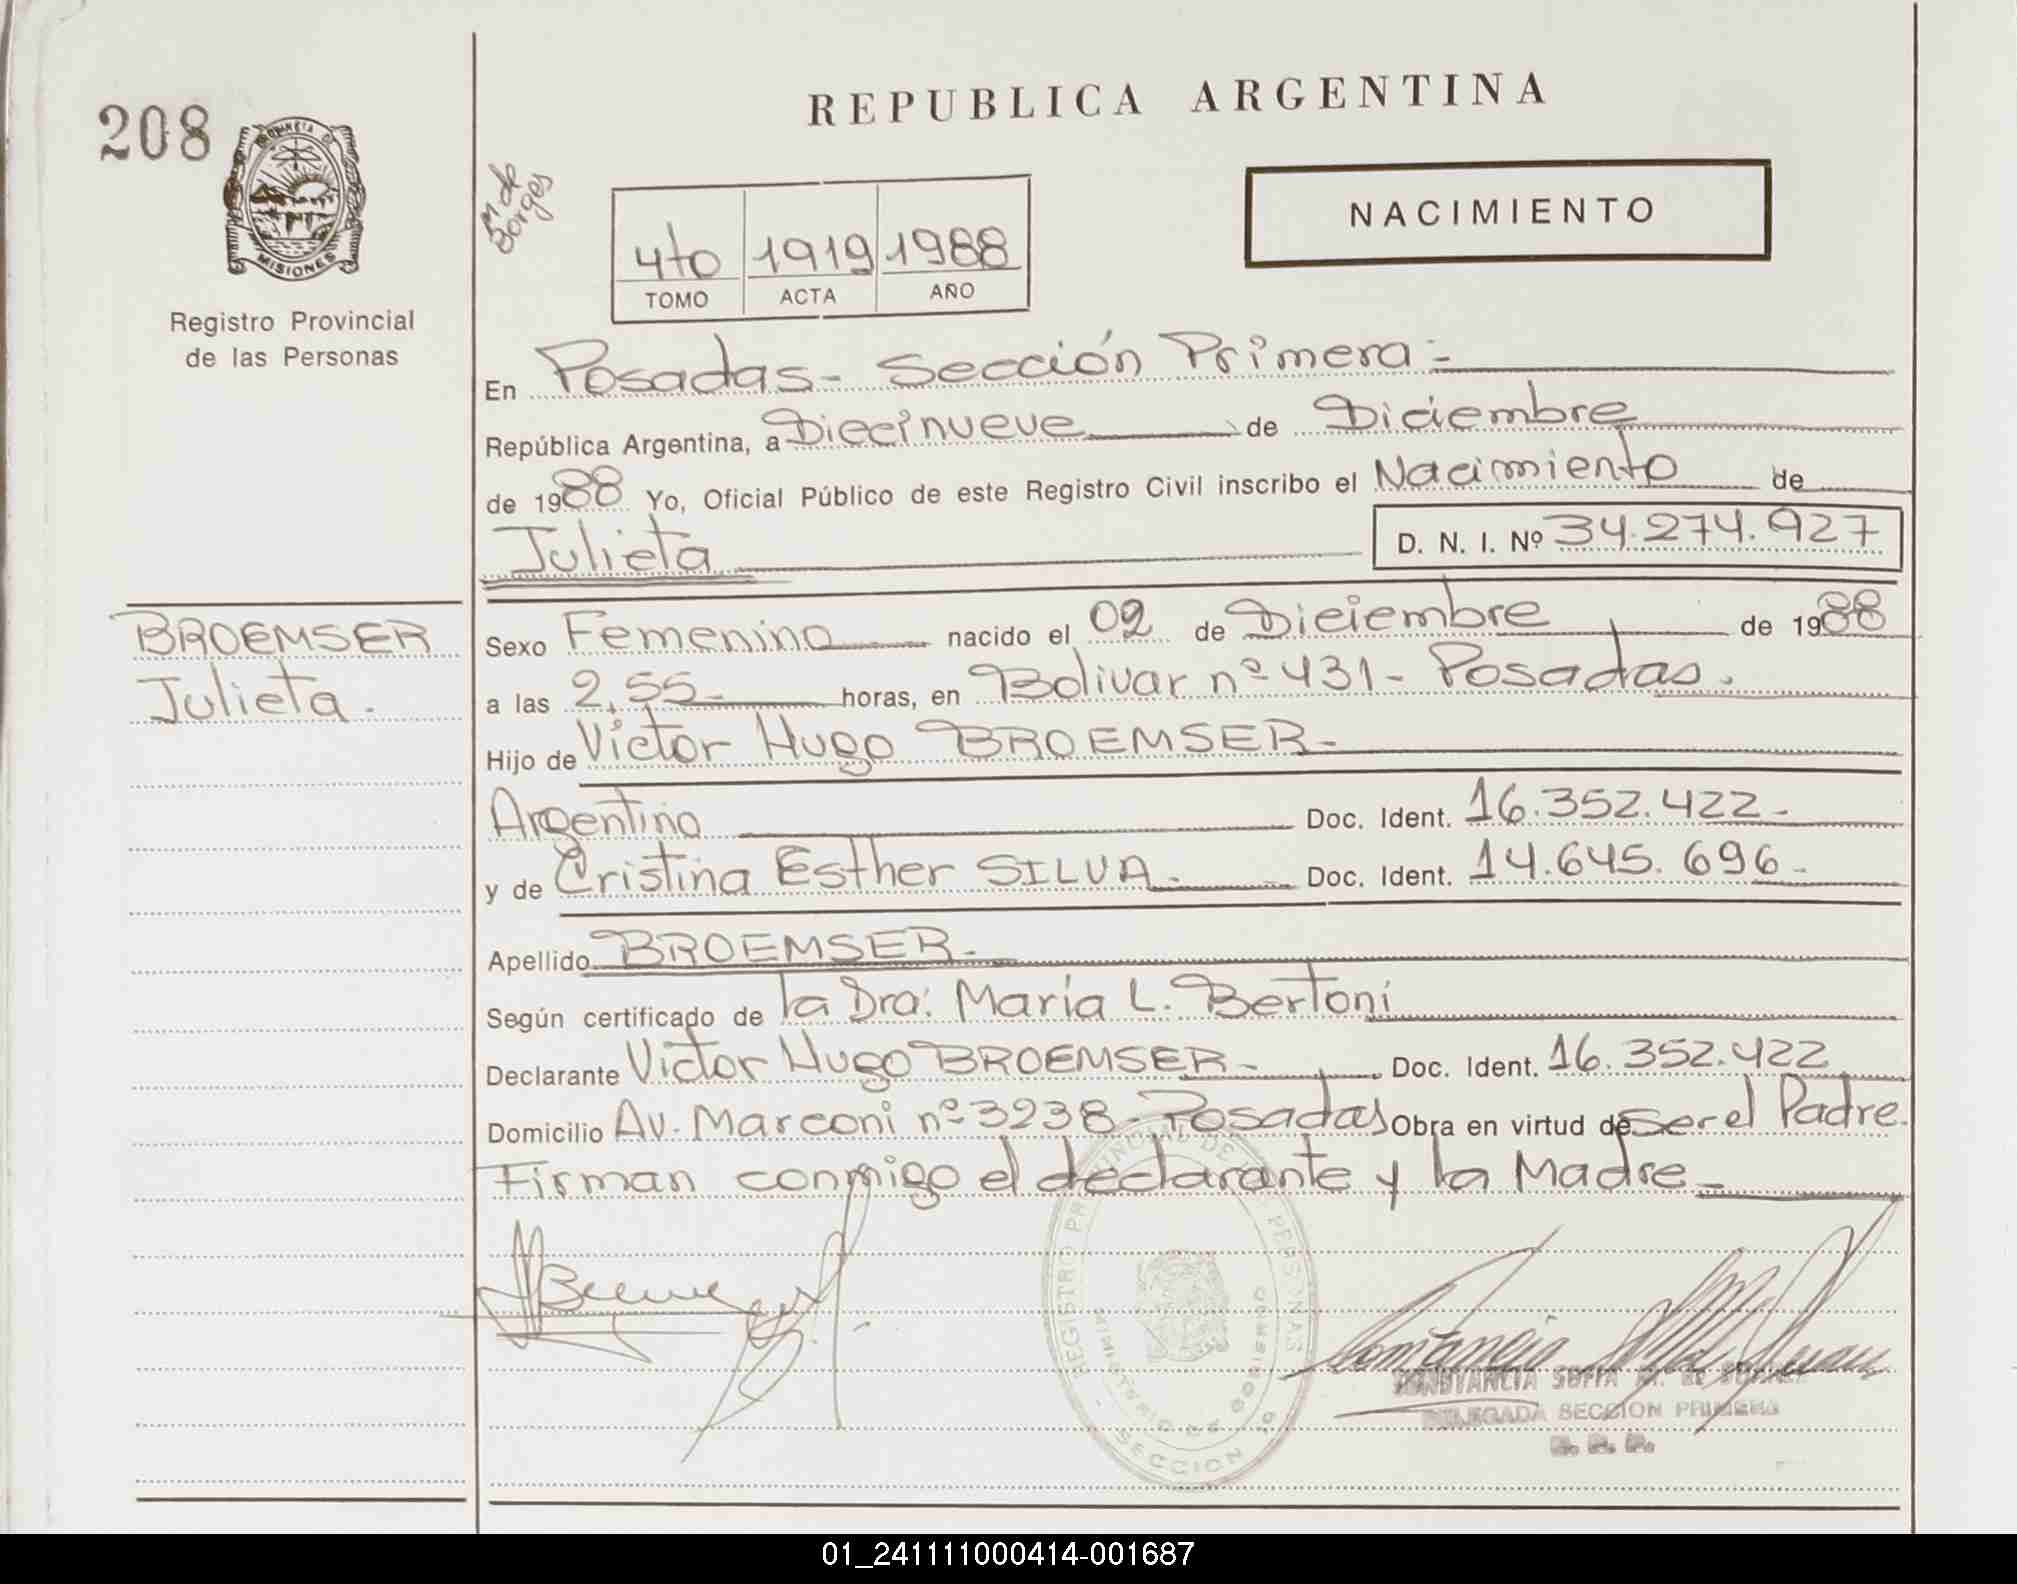 208
PROVINCIA DE
MISIONES
Registro Provincial
de las Personas
REPUBLICA ARGENTINA
M de
Borges
4to 1919 1988
TOMO ACTA AÑO
NACIMIENTO
En Posadas - Sección Primera -
República Argentina, a Diecinueve de Diciembre
de 1988 Yo, Oficial Público de este Registro Civil inscribo el Nacimiento de
Julieta D. N. I. Nº 34.274.927
BROEMSER
Julieta.
Sexo Femenino nacido el 02 de Diciembre de 1988
a las 2,55 - horas, en Bolivar nº 431 - Posadas.
Hijo de Victor Hugo BROEMSER -
Argentino Doc. Ident. 16.352.422 -
y de Cristina Esther SILVA - Doc. Ident. 14.645.696 -
Apellido BROEMSER -
Según certificado de la Dra: María L. Bertoni
Declarante Victor Hugo BROEMSER - Doc. Ident. 16.352.422
Domicilio Av. Marconi nº 3238 - Posadas Obra en virtud de ser el Padre.
Firman conmigo el declarante y la Madre -
REGISTRO PROVINCIAL DE PERSONAS
MINISTERIO DE GOBIERNO
SECCION 1º
CONSTANCIA SOFIA M. DE
DELEGADA SECCION PRIMERA
R. P. P.
01_241111000414-001687